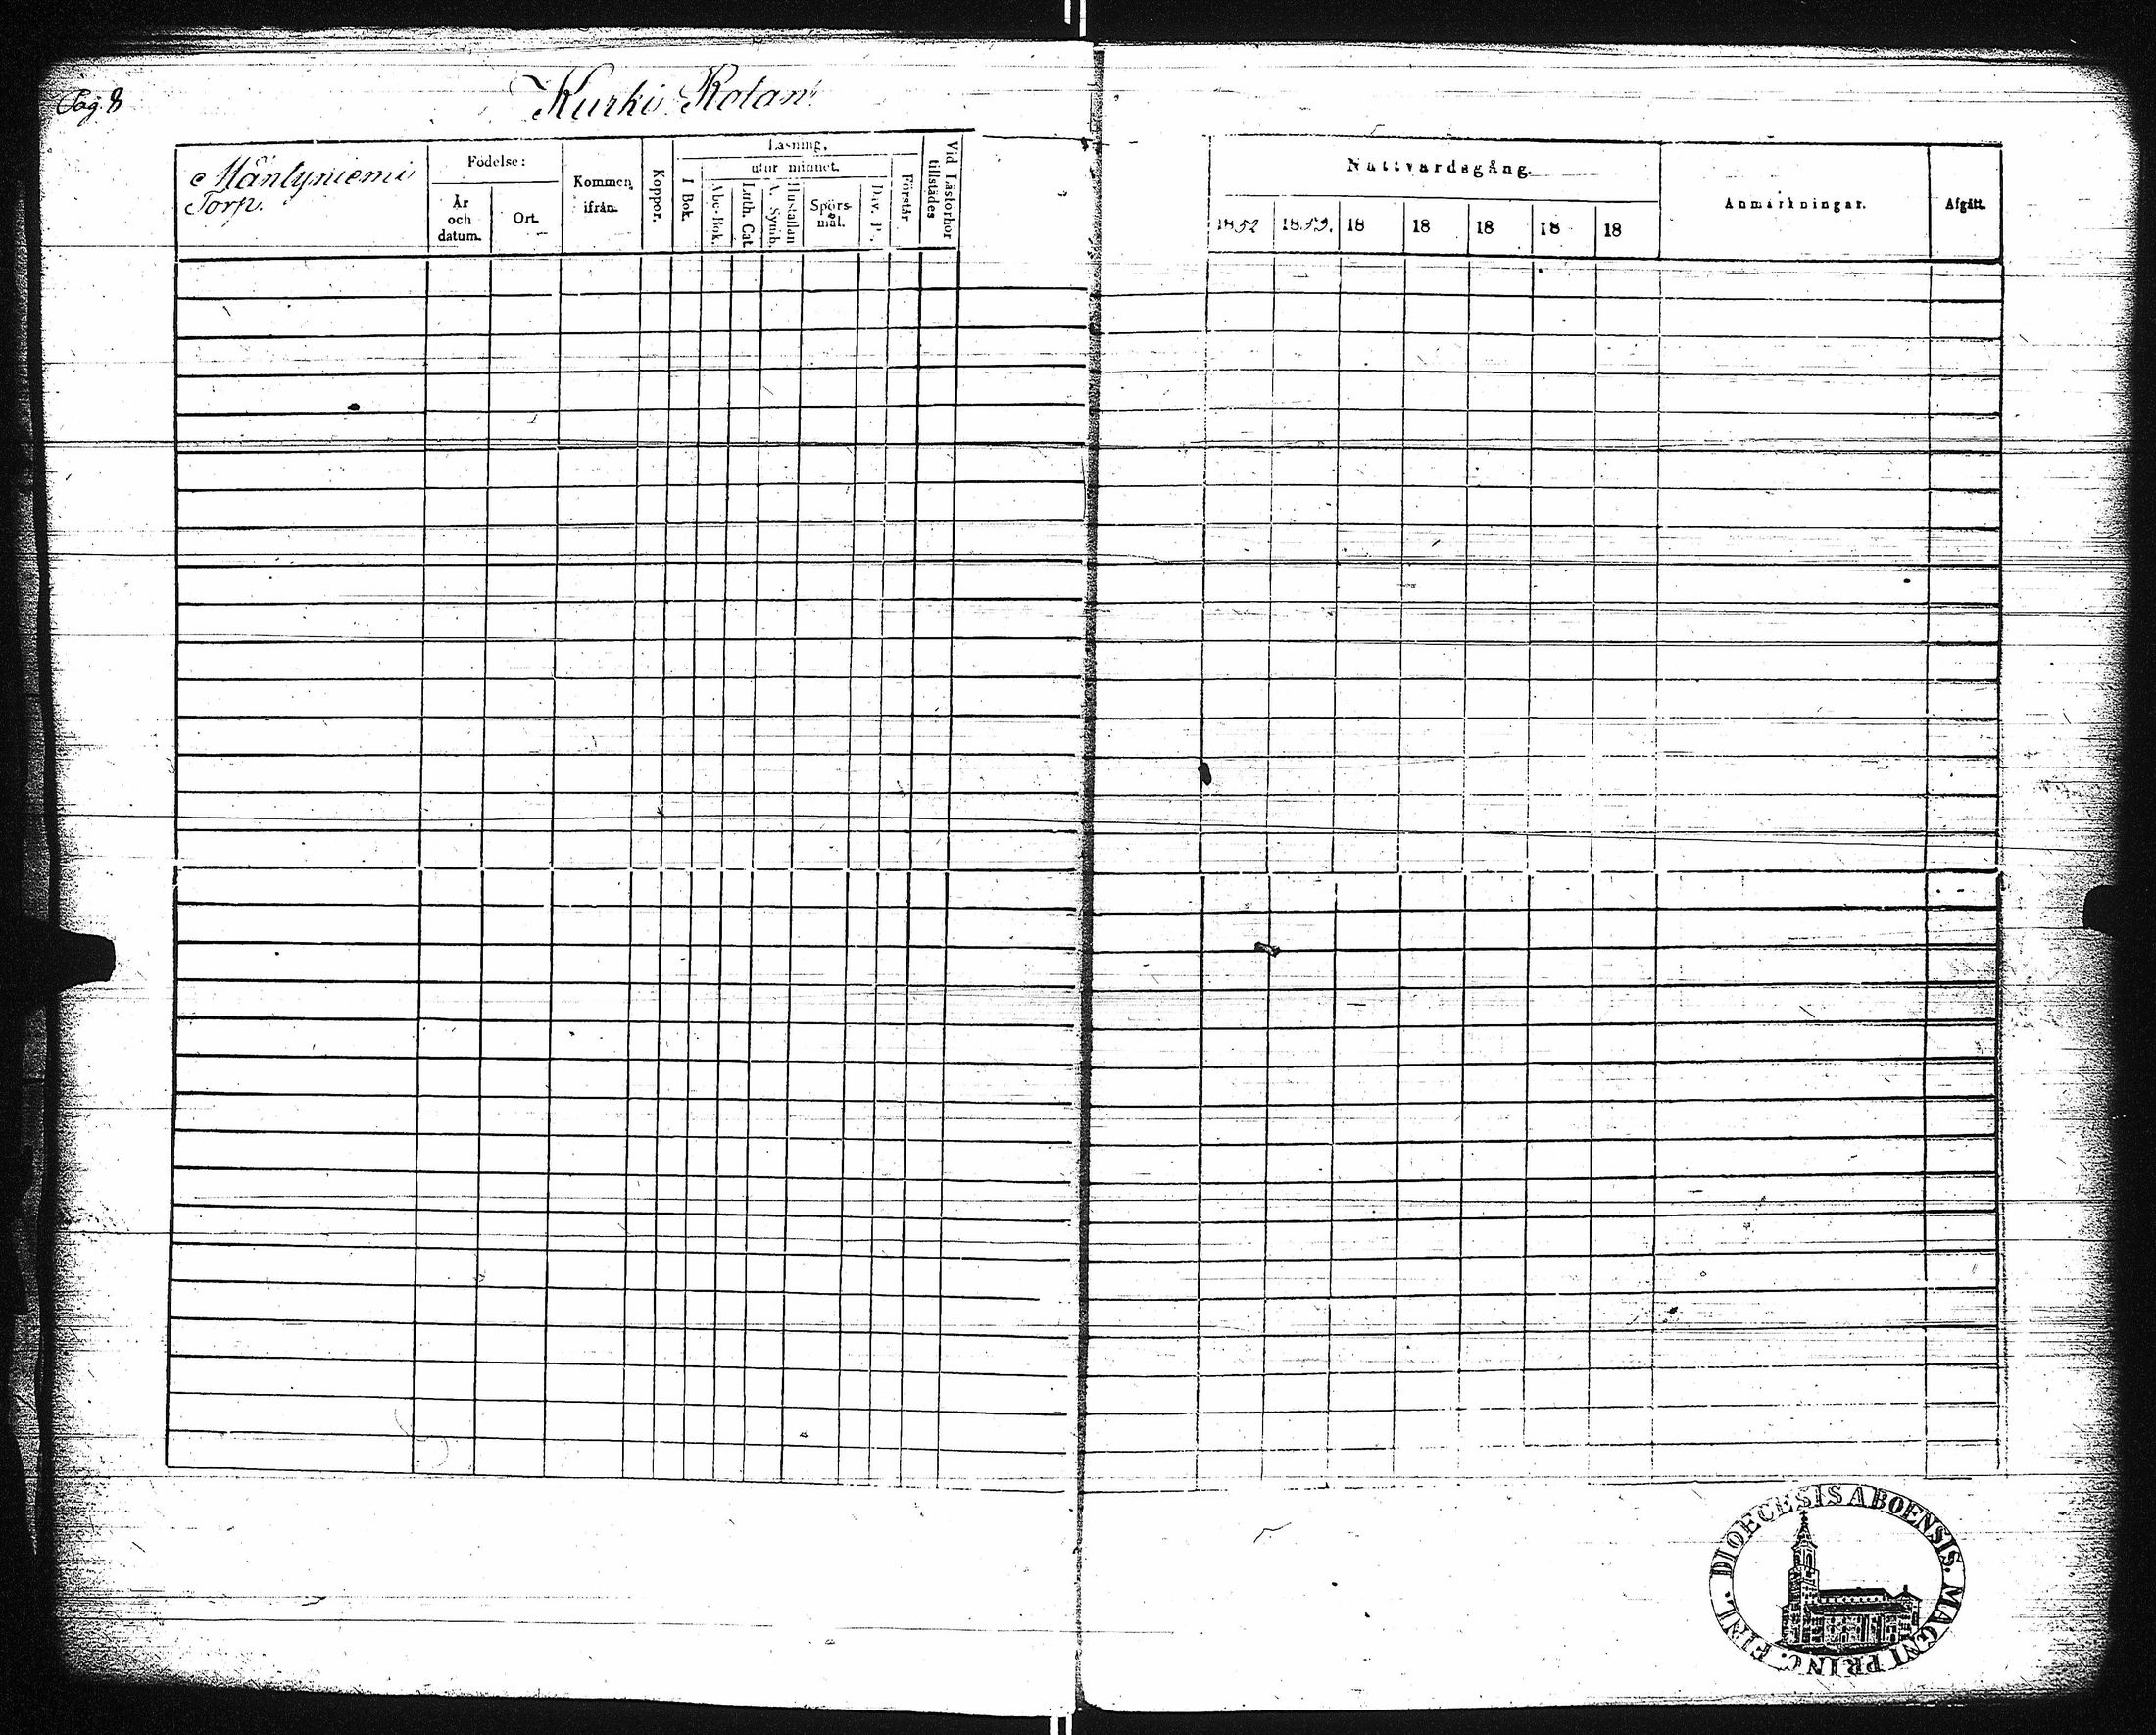 Pag. 8
Kurki Rotan
Mäntyniemi
Torp.
Födelse:
År
och
datum.
Ort.
Kommen
ifrån.
Koppor.
Läsning,
utur minnet.
I Bok.
Abc-Bok.
Luth. Cat.
A. Symb.
Hustaflan
Spörs-
mål.
Dav. Ps.
Förstår.
Vid Läsförhör
tillstädes
Nattvardsgång.
1852 1853. 18 18 18 18 18
Anmärkningar.
Afgått.
DIOECESIS ABOENSIS. MAGNI PRINC. FINL.